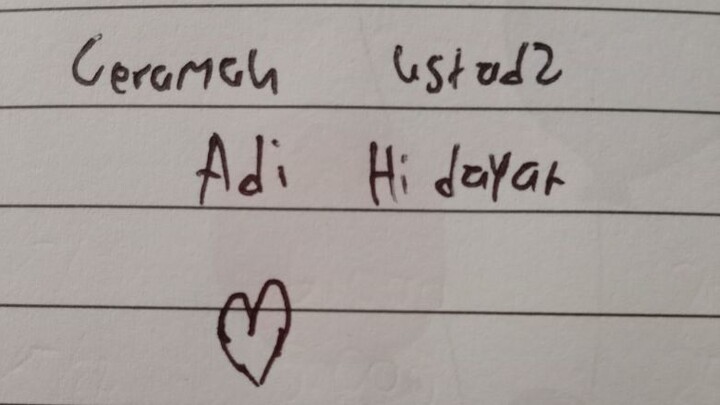 Ceramah Ustadz
Adi Hidayat